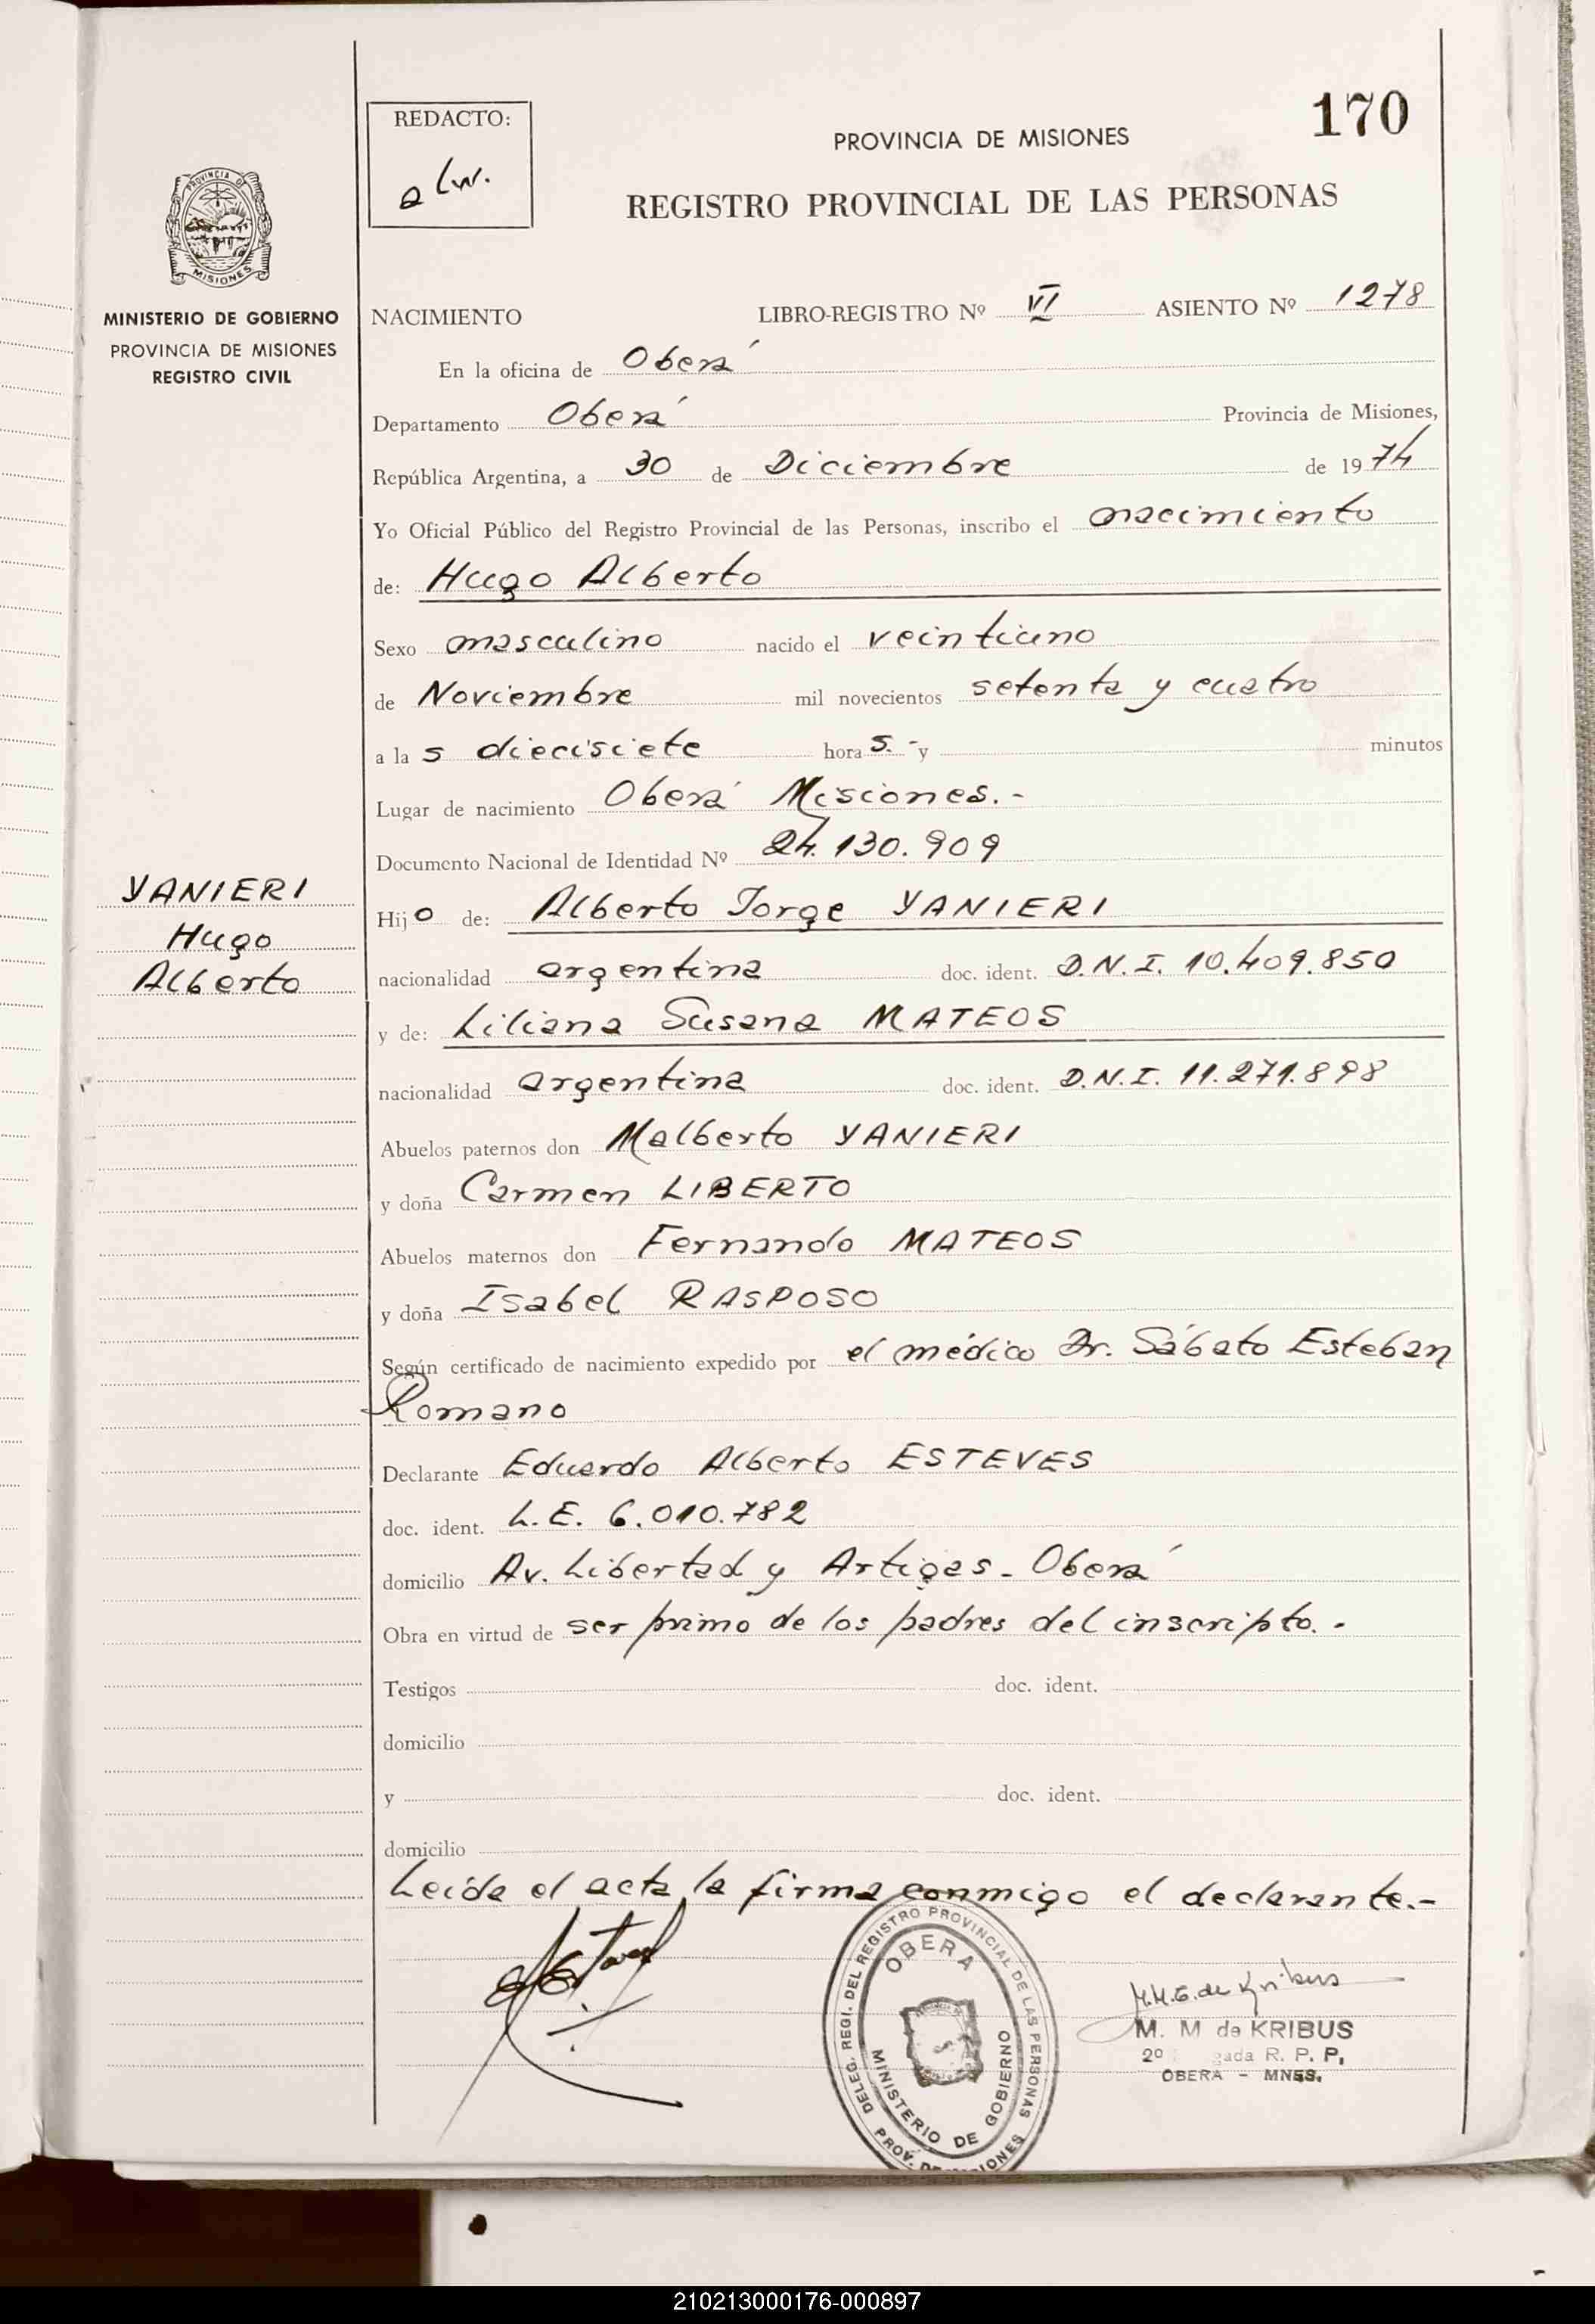 170
REDACTO:
alw.
PROVINCIA DE MISIONES
REGISTRO PROVINCIAL DE LAS PERSONAS
PROVINCIA DE
MISIONES
MINISTERIO DE GOBIERNO
PROVINCIA DE MISIONES
REGISTRO CIVIL
NACIMIENTO LIBRO-REGISTRO Nº VI ASIENTO Nº 1278
En la oficina de Oberá
Departamento Oberá Provincia de Misiones,
República Argentina, a 30 de Diciembre de 1974
Yo Oficial Público del Registro Provincial de las Personas, inscribo el nacimiento
de: Hugo Alberto
Sexo masculino nacido el veintiuno
de Noviembre mil novecientos setenta y cuatro
a las diecisiete horas.- y minutos
Lugar de nacimiento Oberá Misiones.-
Documento Nacional de Identidad Nº 24.130.909
YANIERI
Hugo
Alberto
Hijo de: Alberto Jorge YANIERI
nacionalidad argentina doc. ident. D.N.I. 10.409.850
y de: Liliana Susana MATEOS
nacionalidad argentina doc. ident. D.N.I. 11.271.898
Abuelos paternos don Malberto YANIERI
y doña Carmen LIBERTO
Abuelos maternos don Fernando MATEOS
y doña Isabel RASPOSO
Según certificado de nacimiento expedido por el médico Dr. Sábato Esteban
Romano
Declarante Eduardo Alberto ESTEVES
doc. ident. L.E. 6.010.782
domicilio Av. Libertad y Artigas - Oberá
Obra en virtud de ser primo de los padres del inscripto.-
Testigos doc. ident.
domicilio
y doc. ident.
domicilio
Leída el acta, la firma conmigo el declarante.-
DELEG. REGI. DEL REGISTRO PROVINCIAL DE LAS PERSONAS
OBERA
MINISTERIO DE GOBIERNO
PROV. DE MISIONES
M.M.G. de Kribus
M. M de KRIBUS
2º gada R. P. P,
OBERA - MNES.
210213000176-000897